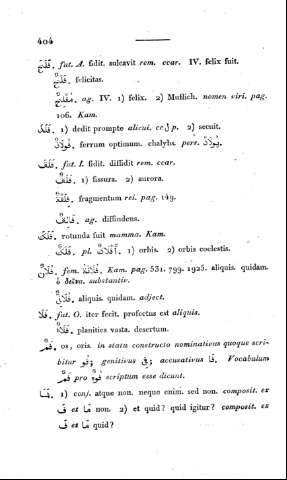 404
فَلَحَ. fut. A. fidit. sulcavit rem. ccar. IV. felix fuit.
فَلَحٌ. felicitas.
مُفْلِحٌ. ag. IV. 1) felix. 2) Muflich. nomen viri. pag.
106. Kam.
فَلَذَ. 1) dedit prompte alicui. cc لِ p. 2) secuit.
فُولَاذٌ. ferrum optimum. chalybs. pers. پُولَادٌ.
فَلَقَ. fut. I. fidit. diffidit rem. ccar.
فَلَقٌ. 1) fissura. 2) aurora.
فِلْقَةٌ. fragmentum rei. pag. 149.
فَالِقٌ. ag. diffindens.
فَلَكَ. rotunda fuit mamma. Kam.
فَلَكٌ. pl. أَفْلَاكٌ. 1) orbis. 2) orbis coelestis.
فُلَانٌ. fem. فُلَانَةُ. Kam. pag. 531. 799. 1925. aliquis. quidam.
ὁ δεῖνα. substantiv.
فُلَانِيٌّ. aliquis. quidam. adject.
فَلَا. fut. O. iter fecit. profectus est aliquis.
فَلَاةٌ. planities vasta. desertum.
فَمٌ. os, oris. in statu constructo nominativus quoque scri-
bitur فُو; genitivus فِي; accusativus فَا. Vocabulum
فَمٌ pro فُوهٌ scriptum esse dicunt.
فَمَا. 1) conj. atque non. neque enim. sed non. composit. ex
فَ et مَا non. 2) et quid? quid igitur? composit. ex
فَ et مَا quid?